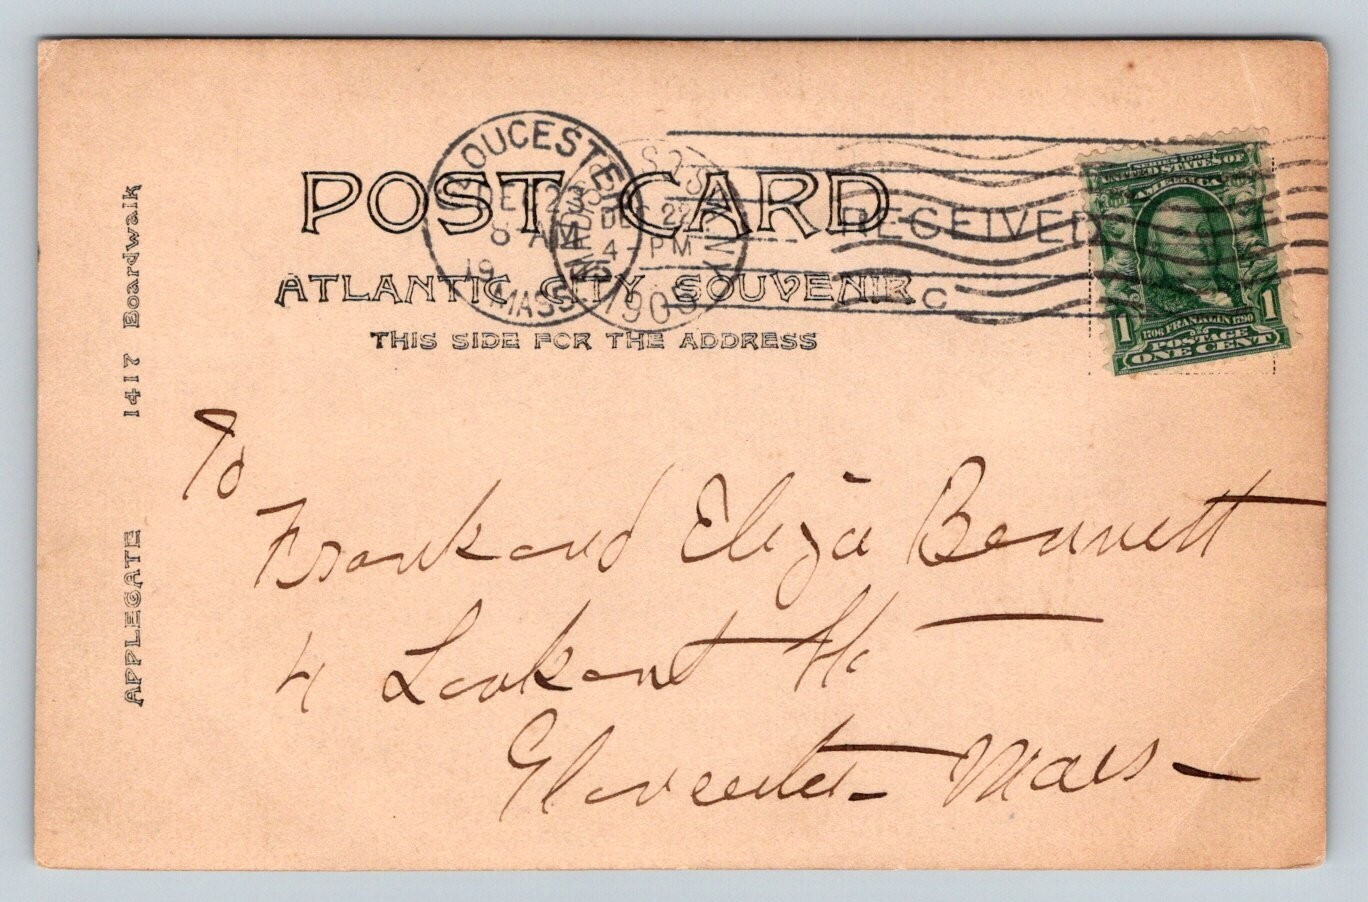 POST CARD
ATLANTIC CITY SOUVENIR
THIS SIDE FOR THE ADDRESS
APPLEGATE 1417 Boardwalk
GLOUCESTER
DEC 23
8 AM
19
MASS.
MADISON SQ. STA. N.Y.
DEC 22
4-PM
1905
RECEIVED
C
SERIES 1902
UNITED STATES OF
AMERICA
1706 FRANKLIN 1790
POSTAGE
1 ONE CENT 1
To
Frank and Eliza Bennett
4 Lookout St
Gloucester - Mass -